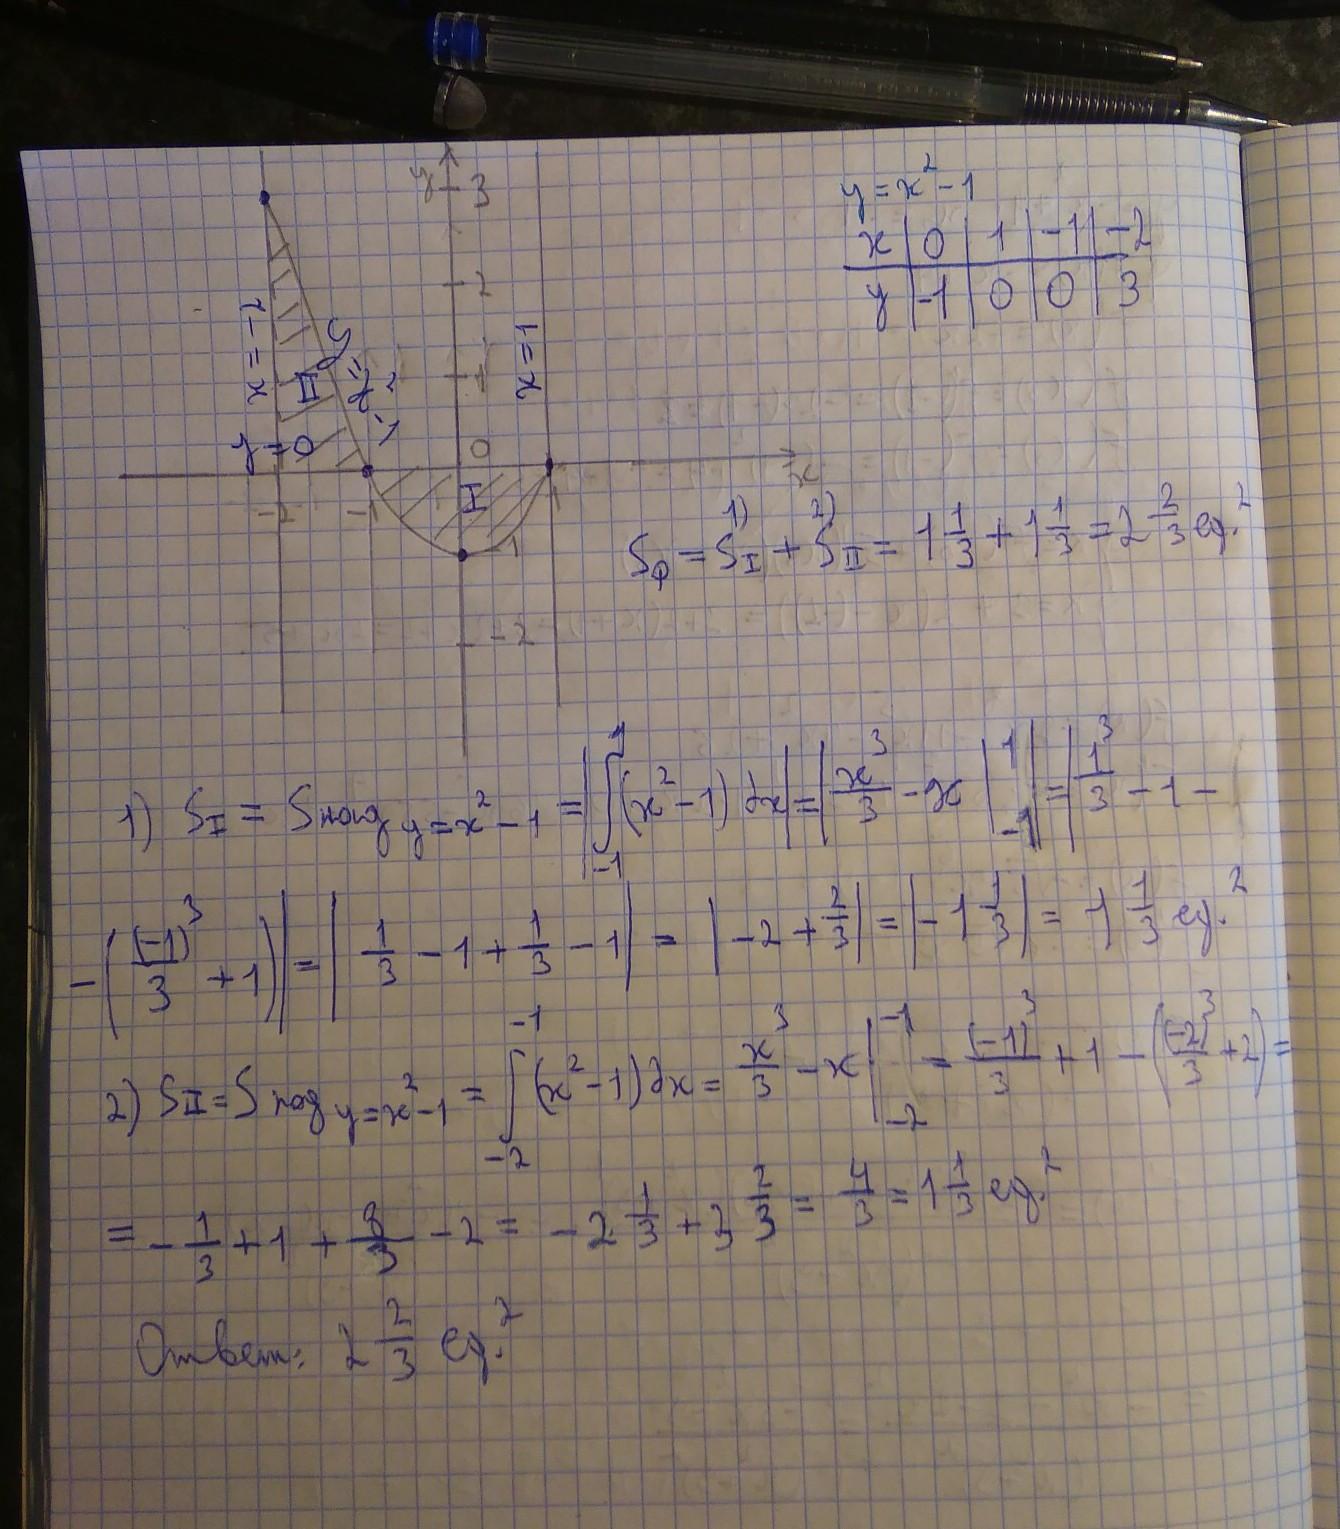 y 3
y = x² - 1
x | 0 | 1 | -1 | -2
y | -1 | 0 | 0 | 3
2
x = -2
x = 1
1
II
y = x² - 1
y = 0
0
x
-2 -1 1
I
-1
-2
1) 2)
Sф = S_I + S_II = 1 1/3 + 1 1/3 = 2 2/3 ед.²
1) S_I = S под y = x² - 1 = |∫_{-1}^{1} (x² - 1) dx| = |x³/3 - x |_{-1}^{1}| = |1³/3 - 1 -
- ((-1)³/3 + 1)| = |1/3 - 1 + 1/3 - 1| = |-2 + 2/3| = |-1 1/3| = 1 1/3 ед.²
2) S_II = S под y = x² - 1 = ∫_{-2}^{-1} (x² - 1) dx = x³/3 - x |_{-2}^{-1} = (-1)³/3 + 1 - ((-2)³/3 + 2) =
= - 1/3 + 1 + 8/3 - 2 = - 2 1/3 + 3 2/3 = 4/3 = 1 1/3 ед.²
Ответ: 2 2/3 ед.²